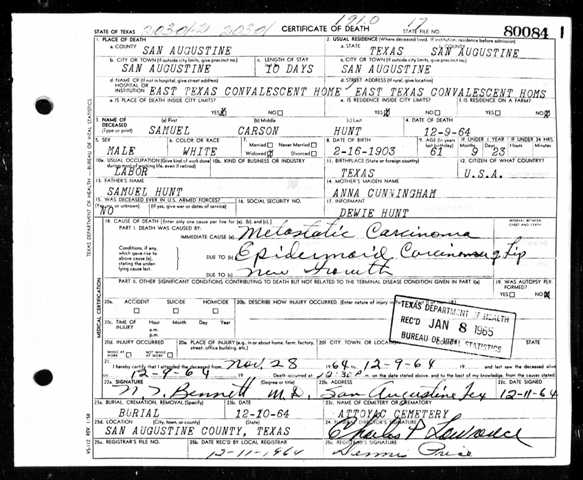 1910 17
STATE OF TEXAS 20301-2 20301 CERTIFICATE OF DEATH STATE FILE NO. 80084 1
1. PLACE OF DEATH 2. USUAL RESIDENCE (Where deceased lived. If institution: residence before admission)
a. COUNTY SAN AUGUSTINE a. STATE TEXAS b. COUNTY SAN AUGUSTINE
b. CITY OR TOWN (If outside city limits, give precinct no.) c. LENGTH OF STAY c. CITY OR TOWN (If outside city limits, give precinct no.)
SAN AUGUSTINE 10 DAYS SAN AUGUSTINE
d. NAME OF (If not in hospital, give street address) HOSPITAL OR INSTITUTION d. STREET ADDRESS (If rural, give location)
EAST TEXAS CONVALESCENT HOME EAST TEXAS CONVALESCENT HOMS
e. IS PLACE OF DEATH INSIDE CITY LIMITS? e. IS RESIDENCE INSIDE CITY LIMITS? f. IS RESIDENCE ON A FARM?
YES NO YES NO YES NO
3. NAME OF DECEASED (Type or print) (a) First (b) Middle (c) Last 4. DATE OF DEATH
SAMUEL CARSON HUNT 12-9-64
5. SEX 6. COLOR OR RACE 7. Married Never Married Widowed Divorced 8. DATE OF BIRTH 9. AGE (In years last birthday) IF UNDER 1 YEAR IF UNDER 24 HRS.
MALE WHITE 2-16-1903 61 9 23
10a. USUAL OCCUPATION (Give kind of work done 10b. KIND OF BUSINESS OR INDUSTRY 11. BIRTHPLACE (State or foreign country) 12. CITIZEN OF WHAT COUNTRY?
LABOR TEXAS U.S.A.
13. FATHER'S NAME 14. MOTHER'S MAIDEN NAME
SAMUEL HUNT ANNA CUNNINGHAM
15. WAS DECEASED EVER IN U.S. ARMED FORCES? 16. SOCIAL SECURITY NO. 17. INFORMANT
(Yes, no, or unknown) (If yes, give war or dates of service)
NO DEWIE HUNT
18. CAUSE OF DEATH (Enter only one cause per line for (a), (b), and (c).)
PART I. DEATH WAS CAUSED BY:
IMMEDIATE CAUSE (a) Metastatic Carcinoma
Conditions, if any, which gave rise to above cause (a), stating the underlying cause last.
DUE TO (b) Epidermoid Carcinoma of Lip
DUE TO (c) New Growth
PART II. OTHER SIGNIFICANT CONDITIONS CONTRIBUTING TO DEATH BUT NOT RELATED TO THE TERMINAL DISEASE CONDITION GIVEN IN PART I(a) 19. WAS AUTOPSY PERFORMED?
YES NO
20a. ACCIDENT SUICIDE HOMICIDE 20b. DESCRIBE HOW INJURY OCCURRED.
20c. TIME OF INJURY Hour Month Day Year
a.m.
p.m.
TEXAS DEPARTMENT OF HEALTH
REC'D JAN 8 1965
BUREAU OF VITAL STATISTICS
20d. INJURY OCCURRED 20e. PLACE OF INJURY (e.g., in or about home, farm, factory, street, office building, etc.) 20f. CITY, TOWN, OR LOCATION
WHILE AT WORK NOT WHILE AT WORK
21. I hereby certify that I attended the deceased from Nov. 28 64 12-9-64
12-9-64 Death occurred at m. on the date stated above, and to the best of my knowledge, from the causes stated.
22a. SIGNATURE (Degree or title) 22b. ADDRESS 22c. DATE SIGNED
Bennett M.D. San Augustine Tex 12-11-64
23a. BURIAL, CREMATION, REMOVAL (Specify) 23b. DATE 23c. NAME OF CEMETERY OR CREMATORY
BURIAL 12-10-64 ATTOYAC CEMETERY
23d. LOCATION (City, town, or county) (State) 24. FUNERAL DIRECTOR'S SIGNATURE
SAN AUGUSTINE COUNTY, TEXAS Charles P Lawrence
25a. REGISTRAR'S FILE NO. 25b. DATE REC'D BY LOCAL REGISTRAR 25c. REGISTRAR'S SIGNATURE
12-11-1964 Dennis Price
TEXAS DEPARTMENT OF HEALTH — BUREAU OF VITAL STATISTICS
MEDICAL CERTIFICATION